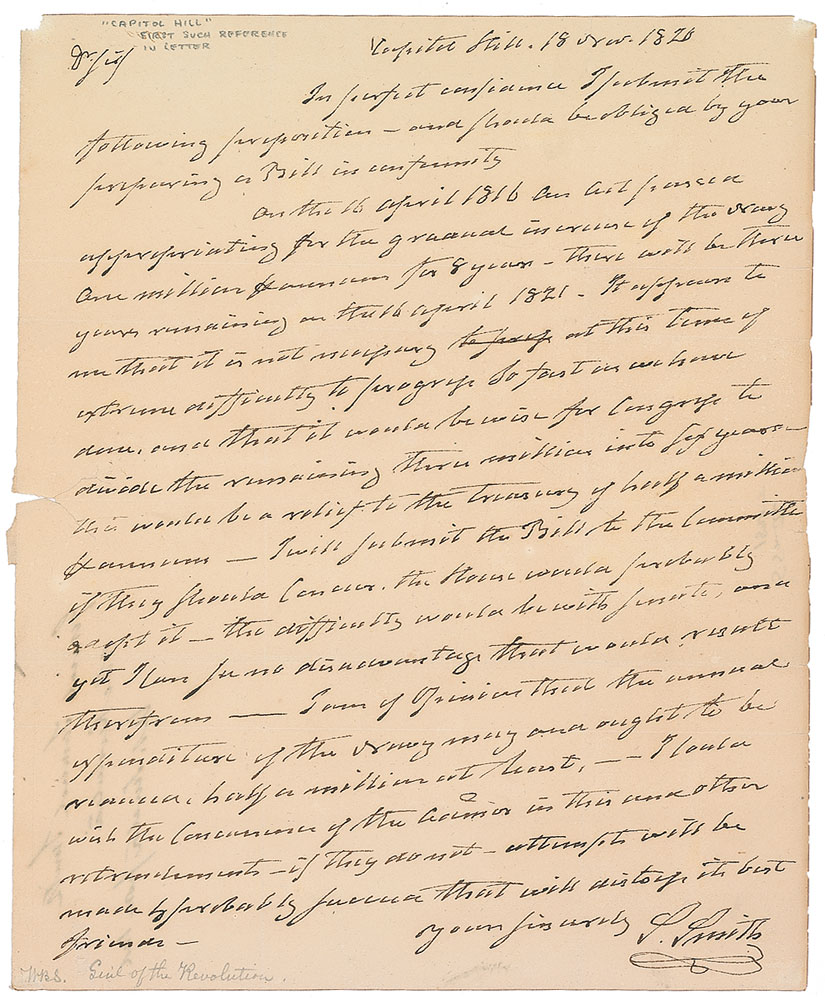 "CAPITOL HILL"
FIRST SUCH REFERENCE
IN LETTER
Capitol Hill. 18 Nov. 1820
Dr Sir
In perfect confidence I submit the
following proposition – and should be obliged by your
preparing a Bill in conformity
On the 16 April 1816 an Act passed
appropriating for the gradual increase of the Navy
One million per annum for 8 years – there will be three
years remaining on the 16 April 1821 – It appears to
me that it is not necessary at this time of
extreme difficulty to progress so fast as we have
done, and that it would be wise for Congress to
divide the remaining three million into six years –
this would be a relief to the Treasury of half a million
per annum – I will submit the Bill to the Committee
if they should concur, the House would probably
adopt it – the difficulty would be with Senate, and
yet I can see no disadvantage that would result
therefrom — I am of Opinion that the annual
expenditure of the Navy may and ought to be
reduced, half a million at least, – – I could
wish the Concurrence of the in this and other
retrenchments – if they do not – attempts will be
made & probably succeed that will distress its best
friends –
Yours sincerely
S. Smith
W.B.S. Genl of the Revolution.